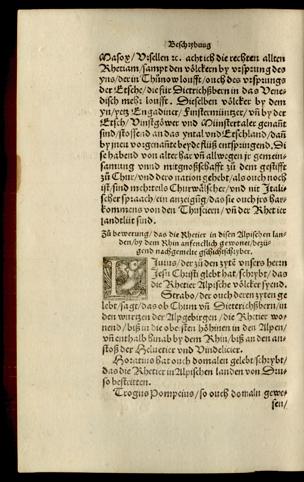 Beschrybung
Masox/ Vrsellen ꝛc. acht ich die rechten allten
Rhetiam/ sampt den völckern by vrsprung des
yns/ der in Thůnow loufft/ ouch des vrsprungs
der Etsche/ die für Dietrichßbern in das Vene-
disch mehr loufft. Dieselben völcker by dem
yn/ yetz Engadiner/ Finstermüntzer/ vñ by der
Etsch/ Vinstgöwer vnd Münstertaler genañt
sind/ stossend an das yntal vnd Etschland/ dañ
by jnen vorgenañt beyde flüß entspringend. Di
se habend von alter har vñ allwegen je gemein-
samung vnnd mitgnoßschafft zů dem gestifft
zů Chur/ vnd der o nation gehebt/ als ouch noch
ist/ sind mehrteils Churwälscher/ vnd nit Itali-
scher spraach/ ein anzeigūg/ das sie ouch jrs har-
kommens von den Thusciern/ vñ der Rhetier
landtlüt sind.
Zů bewerung/ das die Rhetier in disen Alpischen lan-
den/ by dem Rhin anfencklich gewonet/ bezü-
gend nachgemelte gschichtschryber.
Liuius/ der zů den zytē vnsers herrn
Jesu Christi glebt hat/ schrybt/ das
die Rhetier Alpische völcker syend.
Strabo/ der ouch deren zyten ge
lebt/ sagt/ das ob Chum vñ Dietrichßbern/ in
den wurtzen der Alpgebirgen/ die Rhetier wo-
nend/ biß in die obersten höhinen in den Alpen/
vñ enthalb hinab by dem Rhin/ biß an den an-
stoß der Heluetier vnd Vindelicier.
Horatius hat ouch domalen gelebt/ schrybt/
das die Rhetier in Alpischen landen von Dru-
so bestritten.
Trogus Pompeius/ so ouch domaln gewe-
sen/